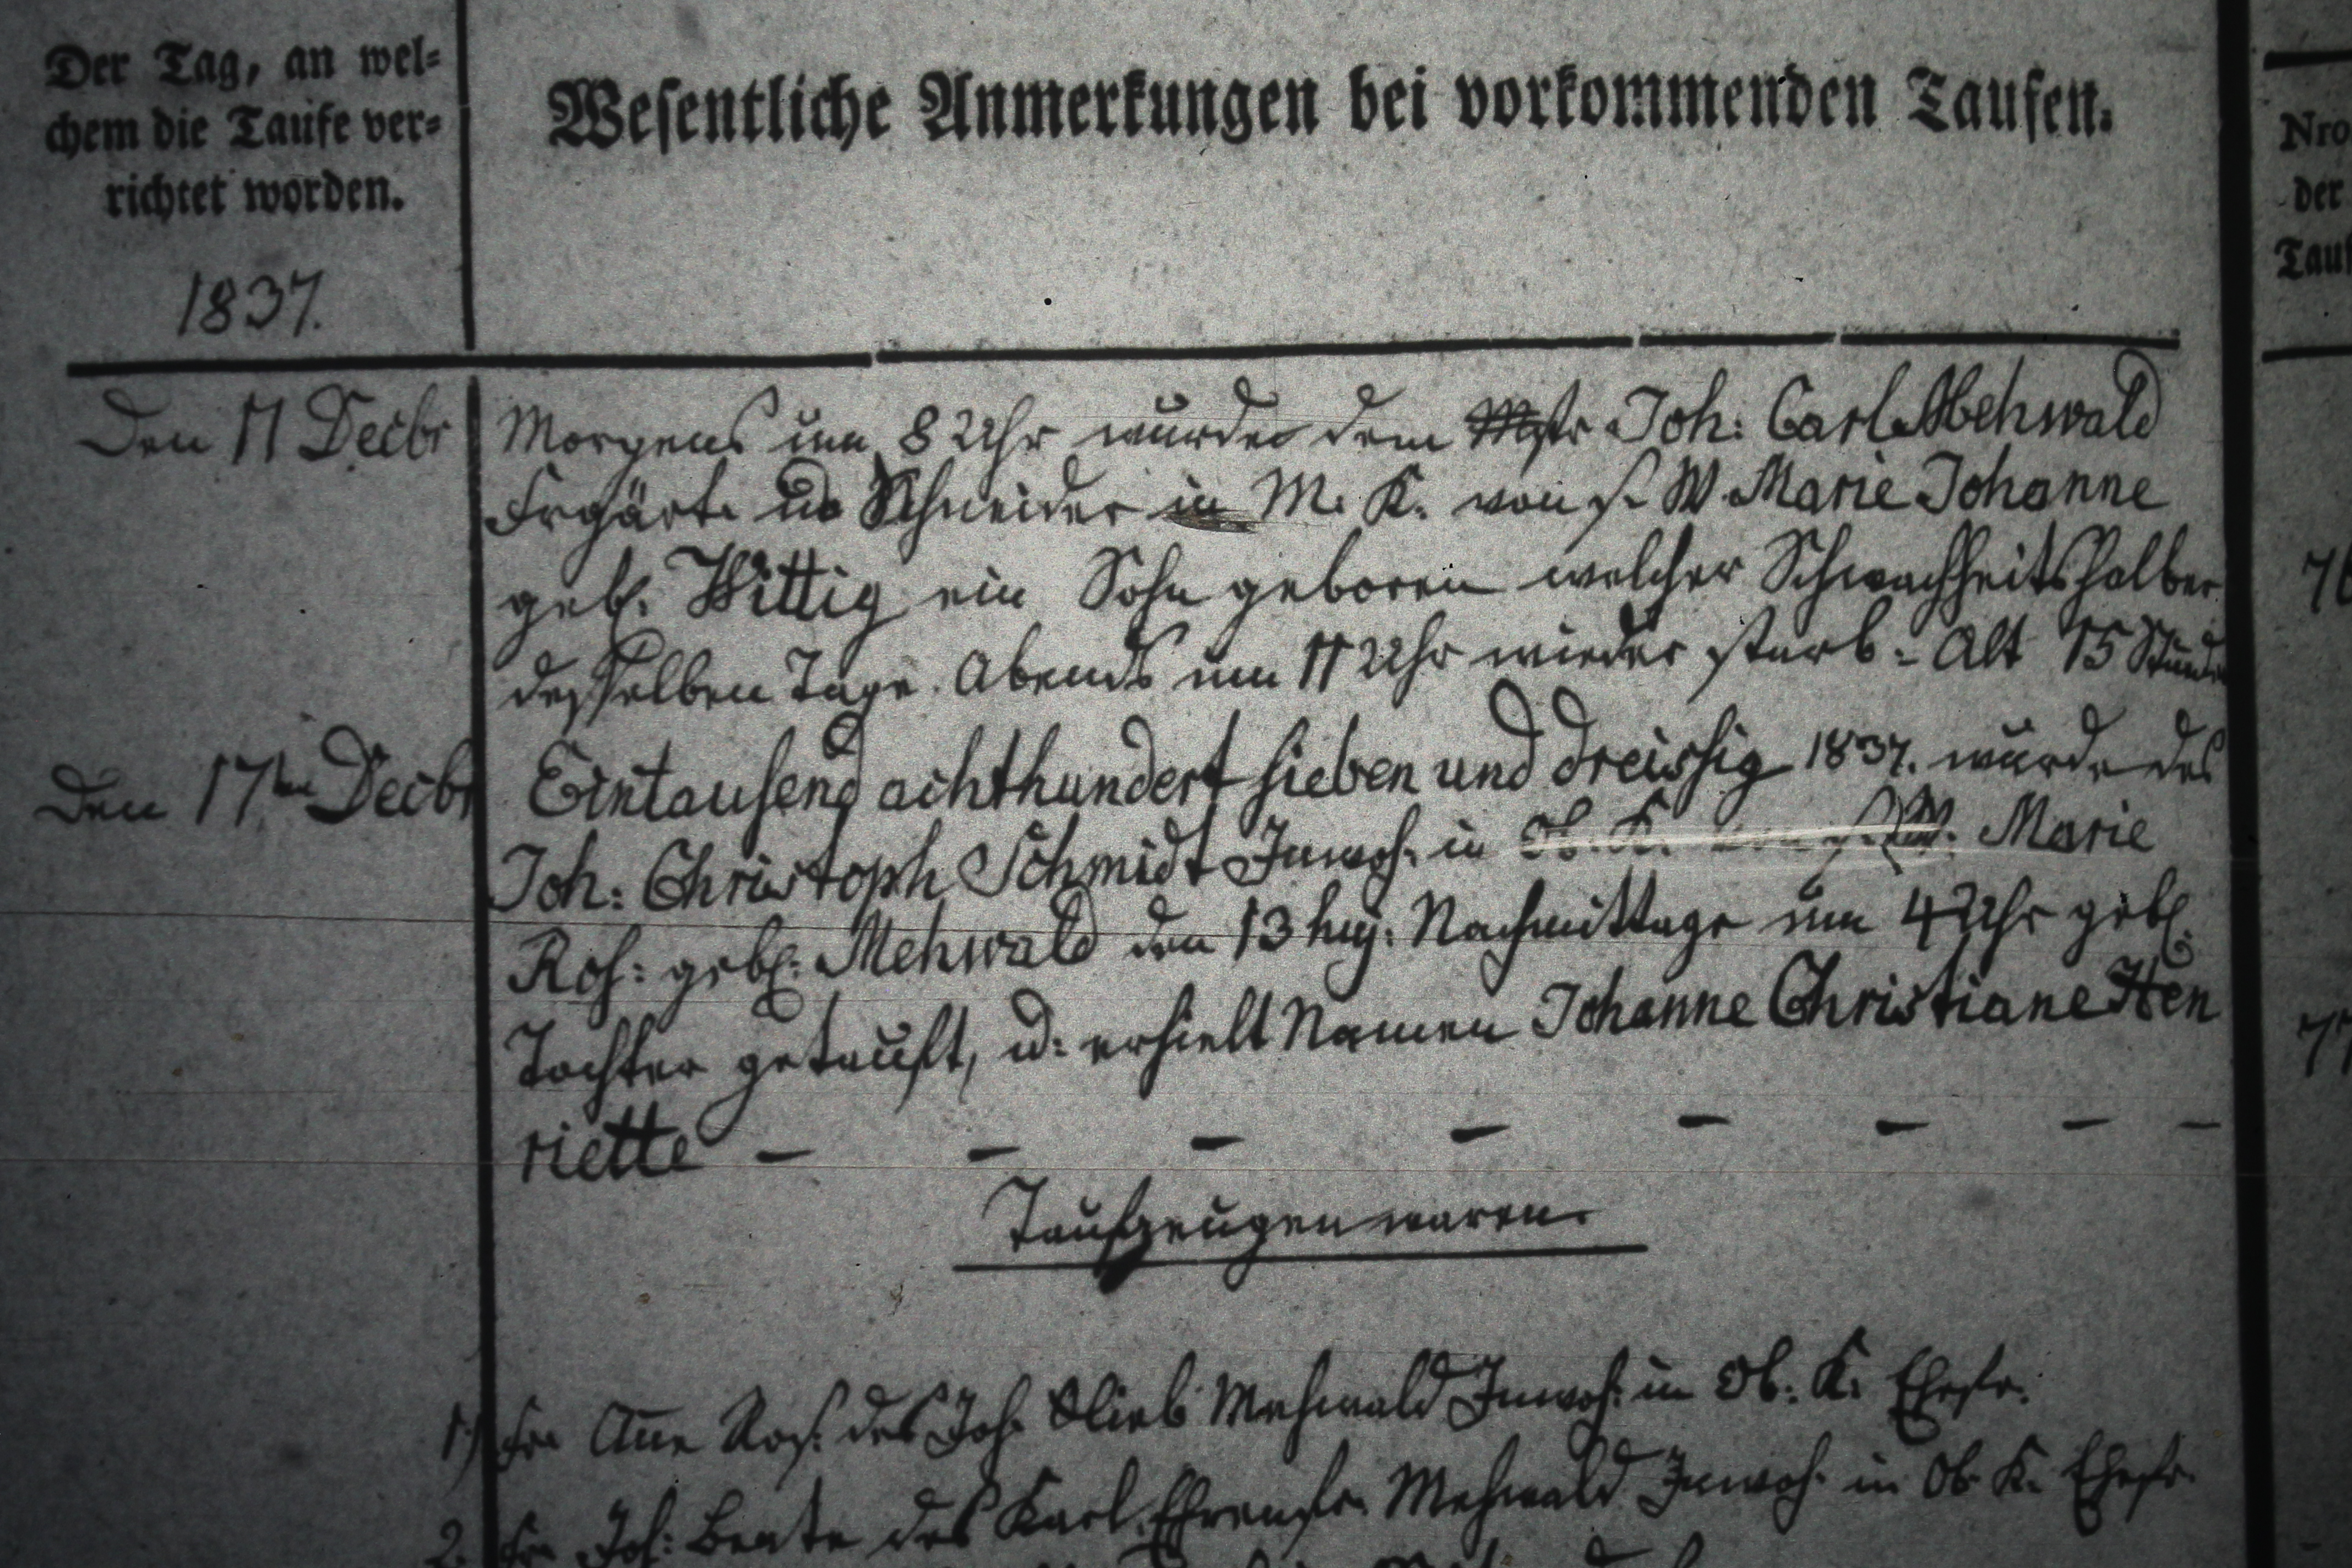 Der Tag, an wel=
chem die Taufe ver=
richtet worden.
1837.
Wesentliche Anmerkungen bei vorkommenden Taufen.
Nro
der
Tauf
Den 11 Decbr
Morgens um 8 Uhr wurde dem Mstr Joh: Carl Mehwald
Frgärt. u Schneider in M. K. von s. W. Marie Johanne
geb. Wittig ein Sohn geboren welcher Schwachheitshalber
desselben Tage Abends um 11 Uhr wieder starb. Alt 15 Stunden
76
Den 17ten Decbr
Eintausend achthundert sieben und dreissig 1837. wurde des
Joh: Christoph Schmidt Inwoh. in Ob. K. s. W. Marie
Ros: geb: Mehwald den 13 huj: Nachmittags um 4 Uhr geb.
Tochter getauft, u: erhielt Namen Johanne Christiane Hen
riette — — — — — — — —
77
Taufzeugen waren.
1.) Fr. Ane Ros: des Joh. Glieb Mehwald Inwoh: in Ob: K. Ehefr.
2. Fr. Joh: Beate des Karl Ehrenfr. Mehwald Inwoh. in Ob. K. Ehefr.